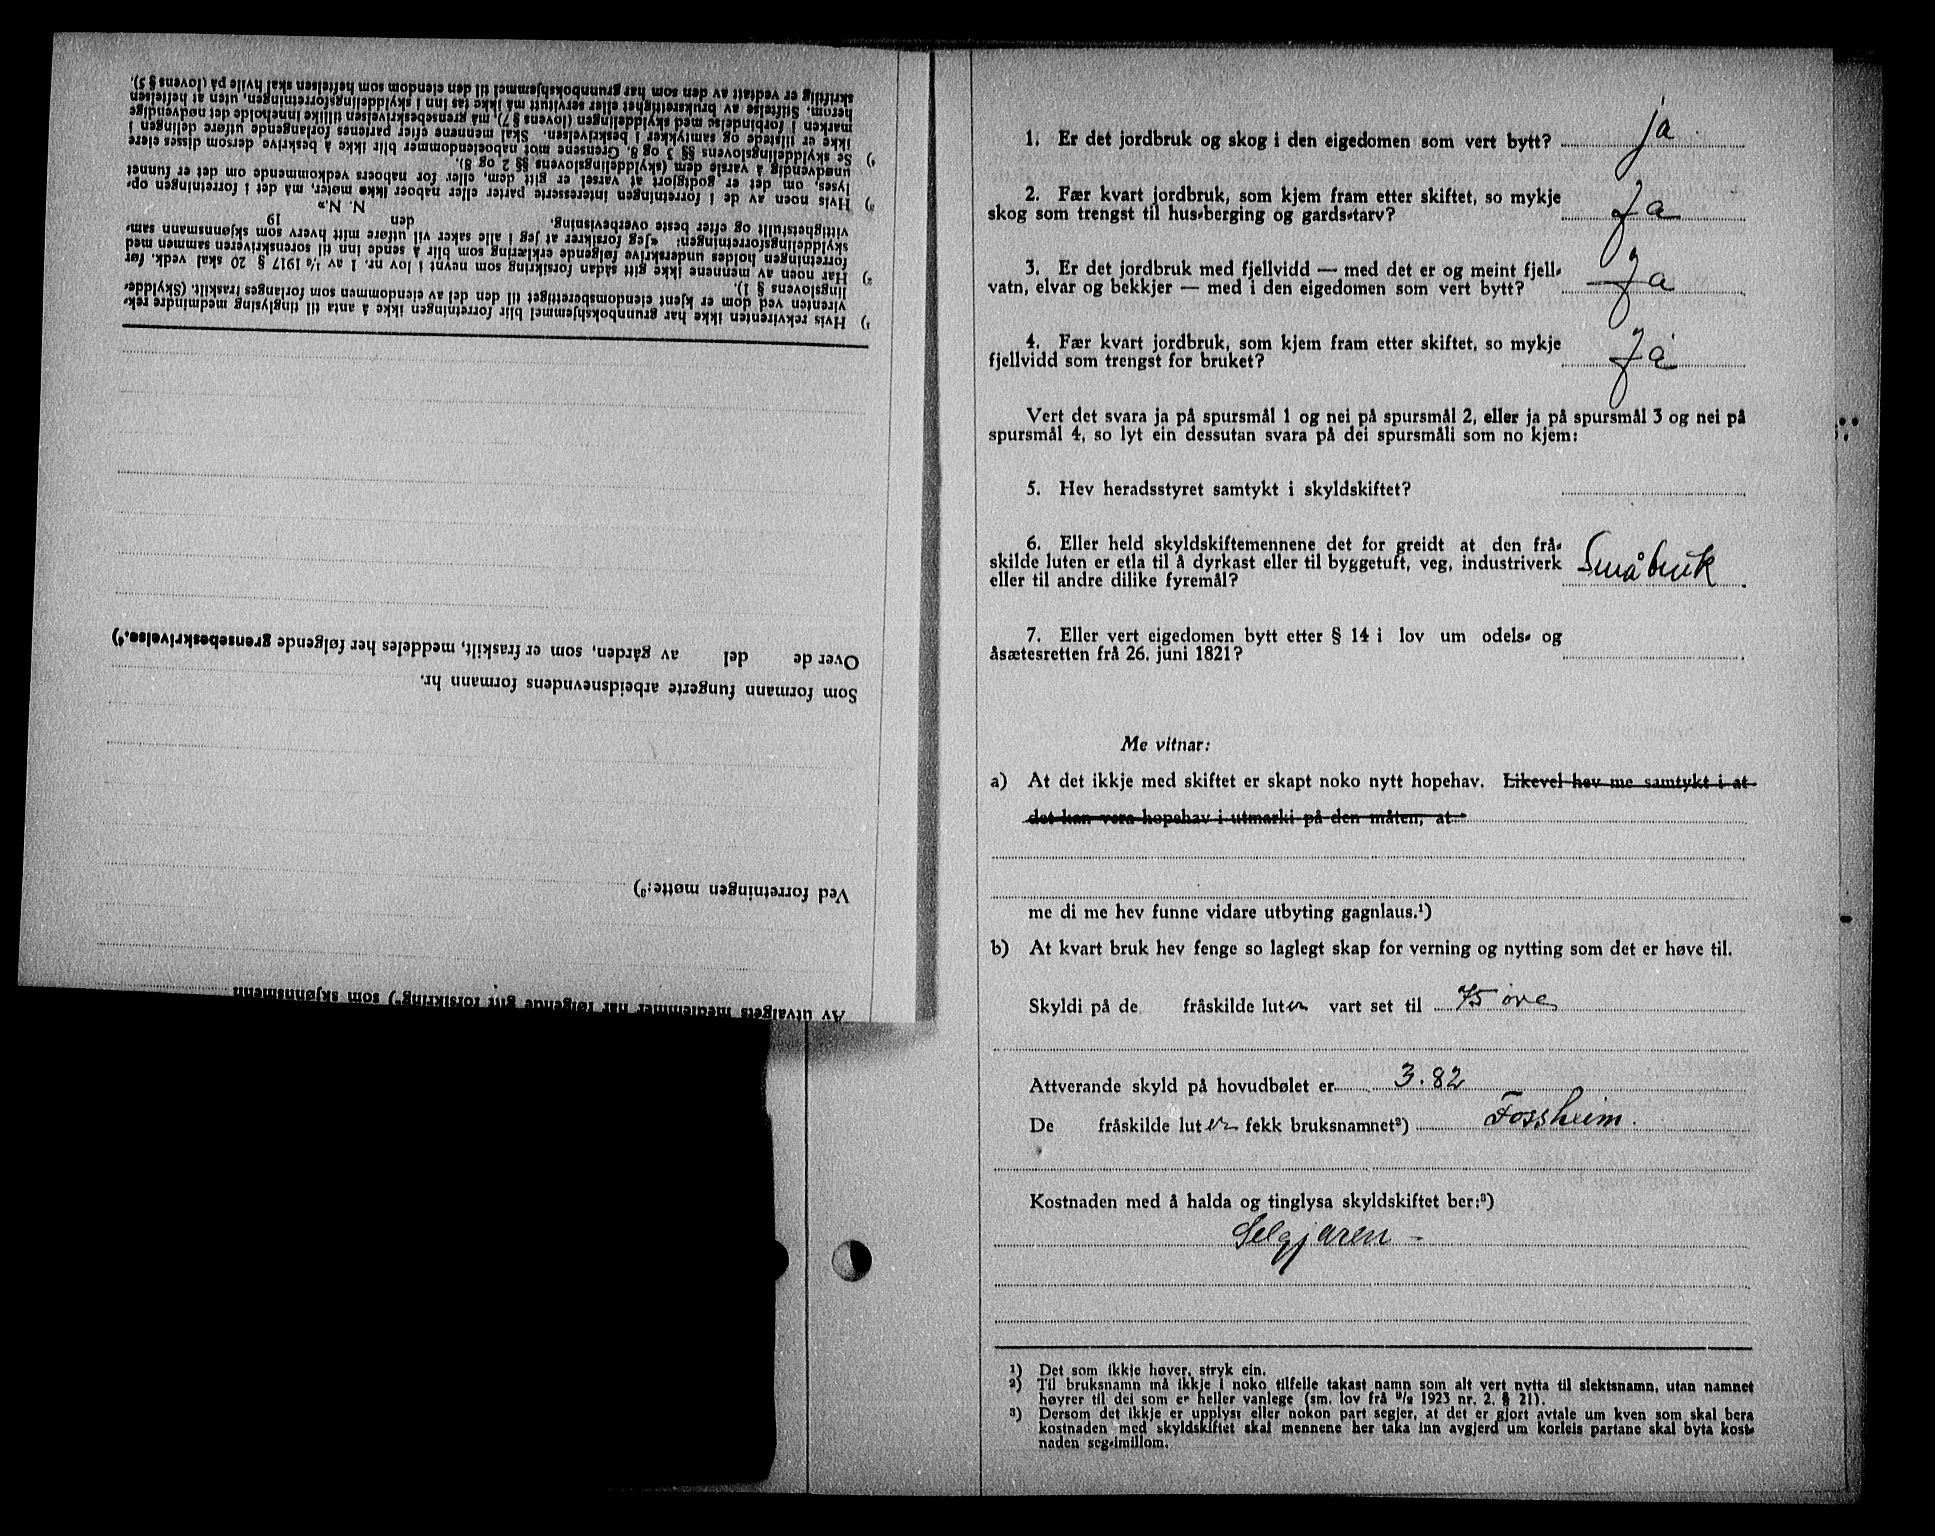 1. Er det jordbruk og skog i den eigedomen som vert bytt? ja
2. Fær kvart jordbruk, som kjem fram etter skiftet, so mykje
skog som trengst til hus-berging og gards-tarv? Ja
3. Er det jordbruk med fjellvidd — med det er og meint fjell-
vatn, elvar og bekkjer — med i den eigedomen som vert bytt? Ja
4. Fær kvart jordbruk, som kjem fram etter skiftet, so mykje
fjellvidd som trengst for bruket? Ja
Vert det svara ja på spursmål 1 og nei på spursmål 2, eller ja på spursmål 3 og nei på
spursmål 4, so lyt ein dessutan svara på dei spursmåli som no kjem:
5. Hev heradsstyret samtykt i skyldskiftet?
6. Eller held skyldskiftemennene det for greidt at den frå-
skilde luten er etla til å dyrkast eller til byggetuft, veg, industriverk
eller til andre dilike fyremål? Småbruk
7. Eller vert eigedomen bytt etter § 14 i lov um odels- og
åsætesretten frå 26. juni 1821?
Me vitnar:
a) At det ikkje med skiftet er skapt noko nytt hopehav. Likevel hev me samtykt i at
det kan vera hopehav i utmarki på den måten, at
me di me hev funne vidare utbyting gagnlaus.¹)
b) At kvart bruk hev fenge so laglegt skap for verning og nytting som det er høve til.
Skyldi på de fråskilde luten vart set til 75 øre
Attverande skyld på hovudbølet er 3.82
De fråskilde luten fekk bruksnamnet²) Fossheim.
Kostnaden med å halda og tinglysa skyldskiftet ber:³)
Selgjaren –
¹) Det som ikkje høver, stryk ein.
²) Til bruksnamn må ikkje i noko tilfelle takast namn som alt vert nytta til slektsnamn, utan namnet
høyrer til dei som er heller vanlege (sm. lov frå ⁹/₂ 1923 nr. 2. § 21).
³) Dersom det ikkje er upplyst eller nokon part segjer, at det er gjort avtale um kven som skal bera
kostnaden med skyldskiftet skal mennene her taka inn avgjerd um korleis partane skal byta kost-
naden seg-imillom.
Av utvalgets medlemmer har følgende gitt forsikring²) som skjønnsmenn
Ved forretningen møtte:³)
Som formann fungerte arbeidsnevndens formann hr.
Over de del av gården, som er fraskilt, meddeles her følgende grensebeskrivelse.⁴)
¹) Hvis rekvirenten ikke har grunnbokshjemmel blir forretningen ikke å anta til tinglysing medmindre rek-
virenten ved dom er kjent eiendomsberettiget til den del av eiendommen som forlanges fraskilt (Skylddel-
lingslovens § 1).
²) Har noen av mennene ikke gitt sådan forsikring som nevnt i lov nr. 1 av ¹/₆ 1917 § 20 skal vedk. før
forretningen holdes underskrive følgende erklæring som blir å sende inn til sorenskriveren sammen med
skylddelingsforretningen: «Jeg forsikrer at jeg i alle saker vil utføre mitt hverv som skjønnsmann sam-
vittighetsfullt og efter beste overbevisning.
den 19
N. N.»
³) Hvis noen av de i forretningen interesserte parter eller naboer ikke møter, må det i forretningen op-
lyses, om det er godtgjort at varsel er gitt dem, eller for naboers vedkommende om det er funnet
unødvendig å varsle dem (skylddelingslovens §§ 2 og 8).
⁴) Se skylddelingslovens §§ 3 og 8. Grensene mot naboeiendommer blir ikke å beskrive dersom disses eiere
ikke er tilstede og samtykker i beskrivelsen. Skal mennene efter partenes forlangende utføre delingen i
marken i forbindelse med skylddelingen (lovens § 7), må grensebeskrivelsen tillike inneholde det nødvendige
herom. Stiftelse av bruksrettighet eller servitutt må ikke tas inn i skylddelingsforretningen, uten at heftelsen
skriftlig er vedtatt av den som har grunnbokshjemmel til den eiendom som heftelsen skal hvile på (lovens § 5).